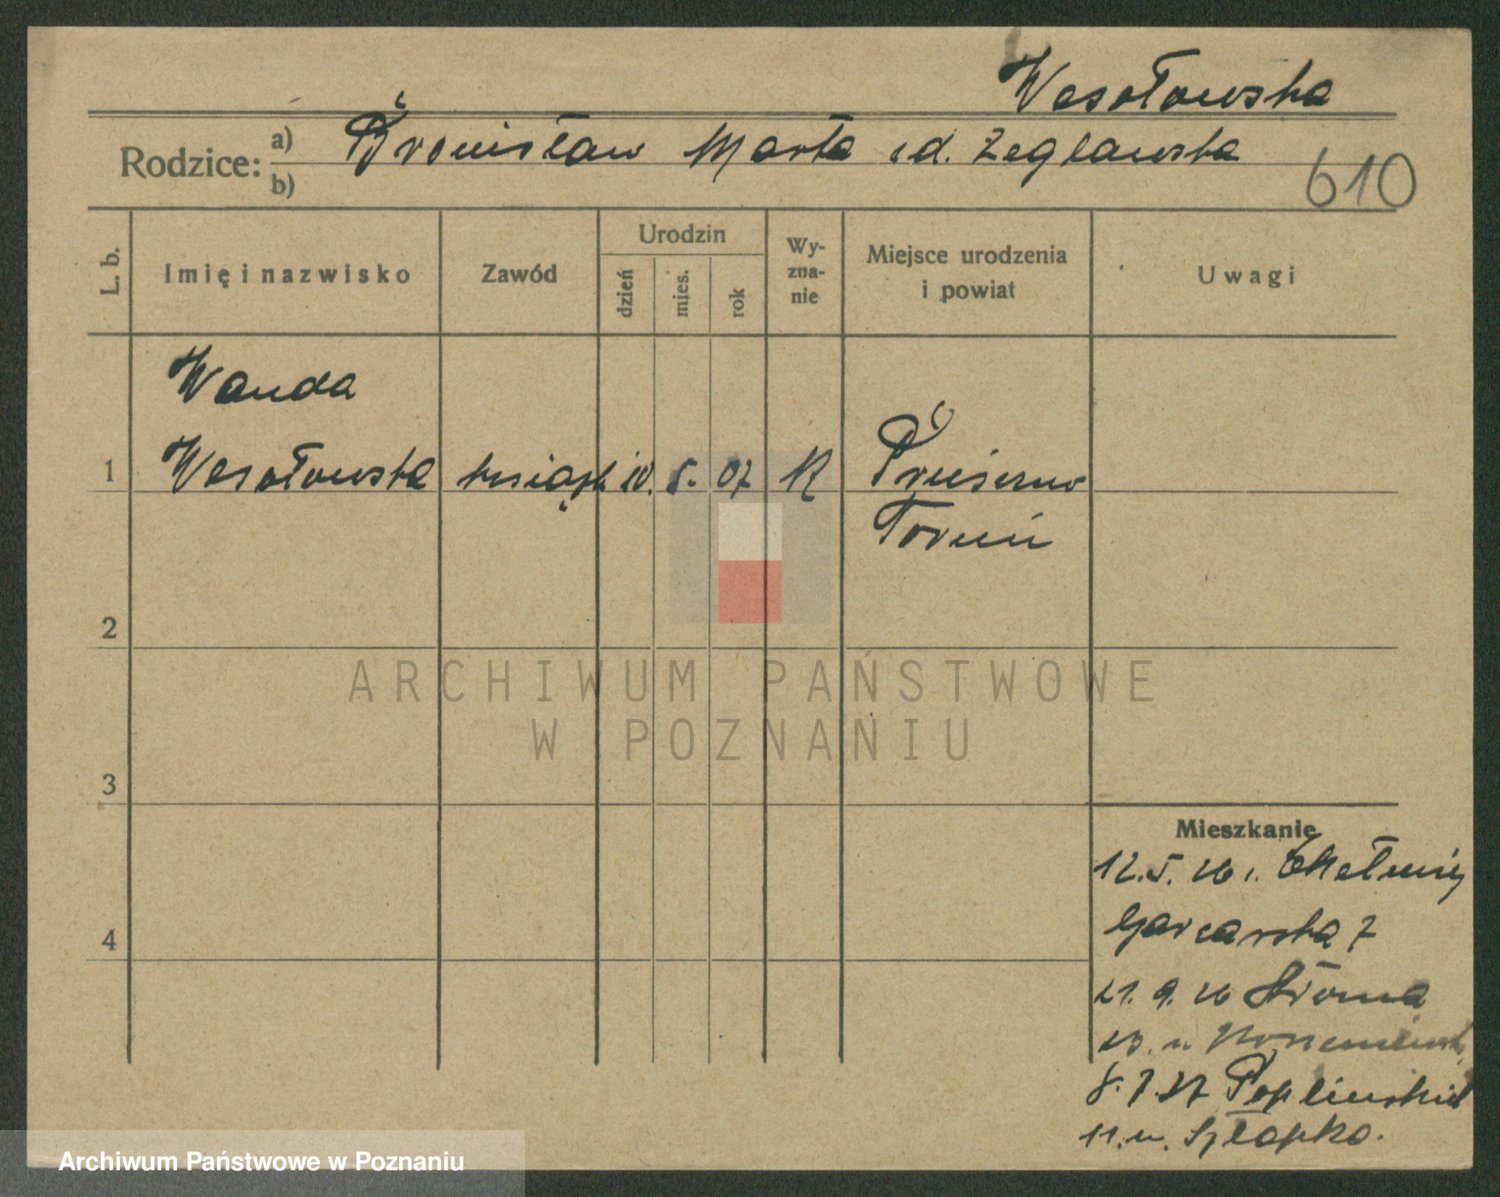 Wesołowska
Rodzice: a) Bronisław Marta zd. Żeglawska
b)
610
L. b.
Imię i nazwisko
Zawód
Urodzin
dzień
mies.
rok
Wy-
zna-
nie
Miejsce urodzenia
i powiat
Uwagi
Wanda
1 Wesołowska 10. 5. 07 R
Toruń
2
3
4
Mieszkanie
12.5.26 Chełmży
Garcarska 7
21. 9. 26
8.7.27 Poplińskich
11. m. Szłapka.
ARCHIWUM PAŃSTWOWE
W POZNANIU
Archiwum Państwowe w Poznaniu